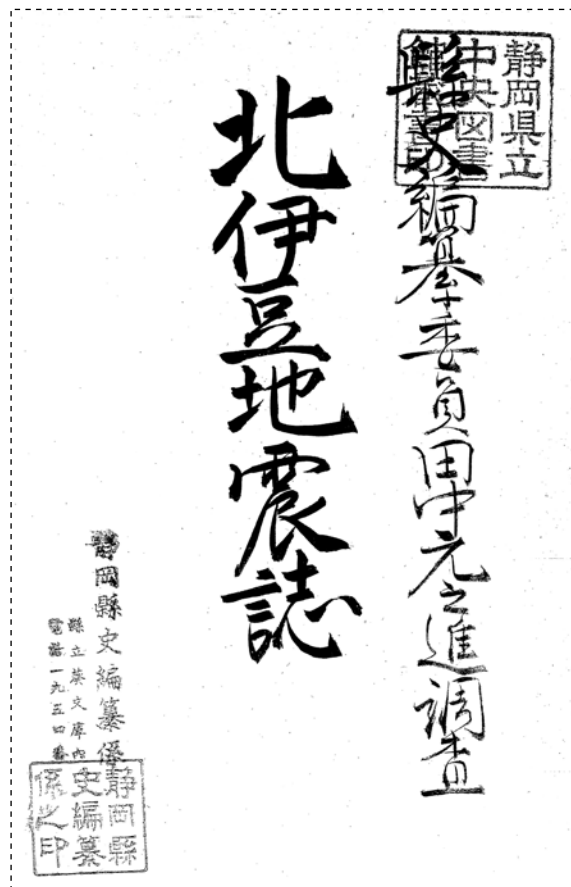 静岡県立
中央図書
館蔵書印
縣史編纂委員田中元之進調査
北伊豆地震誌
静岡縣史編纂係
縣立葵文庫内
電話一九五四番
静岡縣
史編纂
係之印